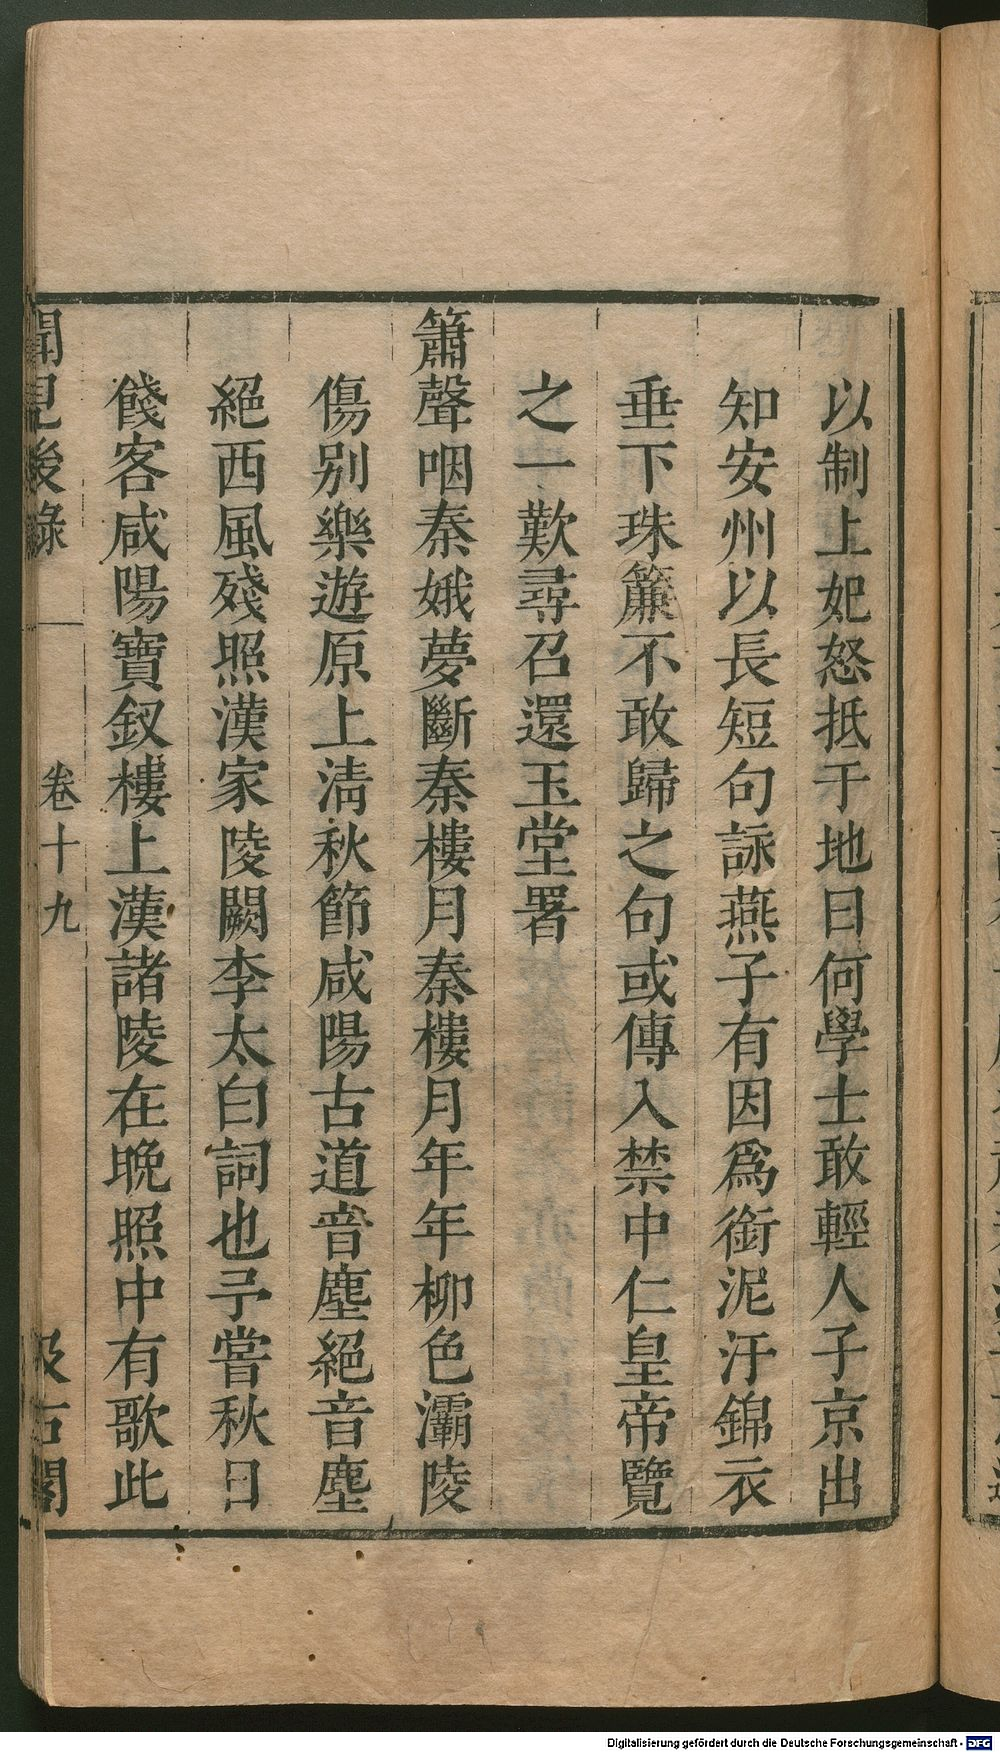 以制上妃怒抵于地曰何學士敢輕人子京出
知安州以長短句詠燕子有因爲銜泥汙錦衣
垂下珠簾不敢歸之句或傳入禁中仁皇帝覽
之一歎尋召還玉堂署
簫聲咽秦娥夢斷秦樓月秦樓月年年柳色灞陵
傷別樂遊原上清秋節咸陽古道音塵絕音塵
絕西風殘照漢家陵闕李太白詞也予嘗秋日
餞客咸陽寶釵樓上漢諸陵在晚照中有歌此
聞見後錄 卷十九 汲古閣
Digitalisierung gefördert durch die Deutsche Forschungsgemeinschaft - DFG